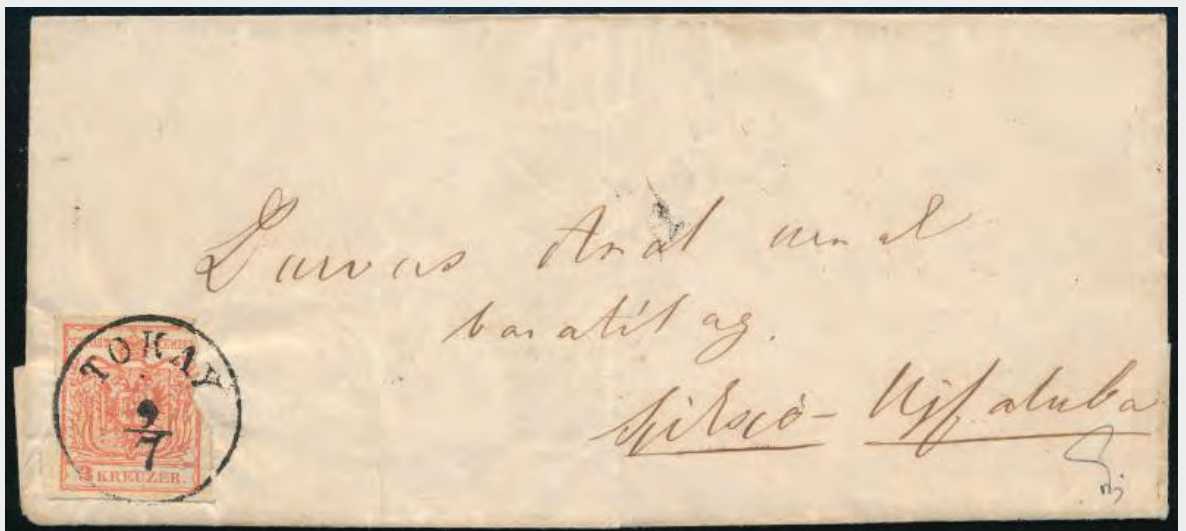 Darvas Antal urnak
baratilag.
Ujfaluba
TOKAY
9
7
KREUZER.